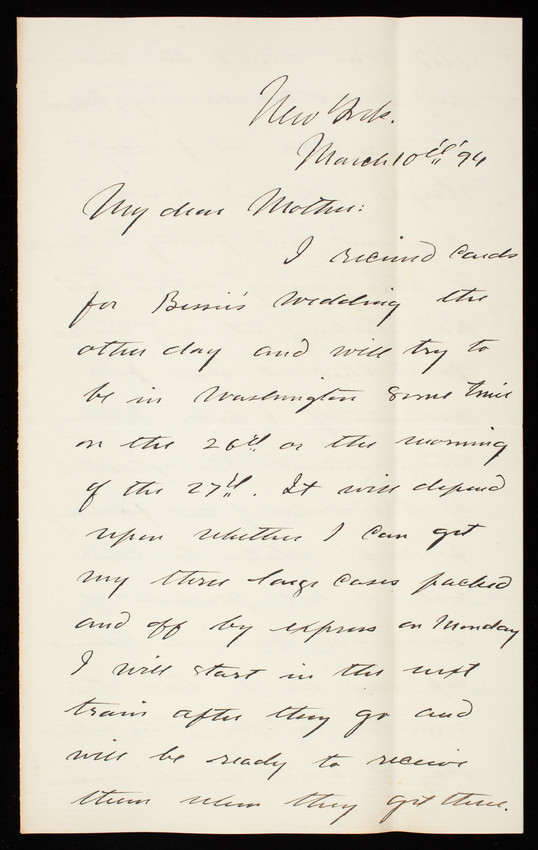 New York.
March 10th '94
My dear Mother:
I received cards
for Bessie's Wedding the
other day and will try to
be in Washington some time
on the 26th or the morning
of the 27th. It will depend
upon whether I can get
my three large cases packed
and off by express on Monday
I will start in the next
train after they go and
will be ready to receive
them when they get there.